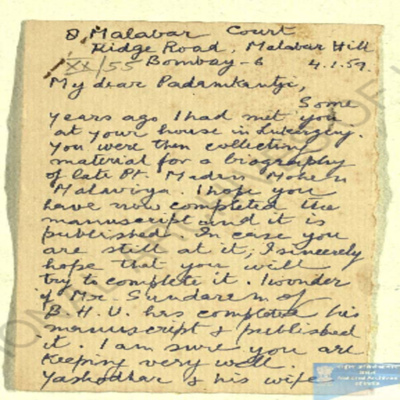 8, Malabar Court
Ridge Road, Malabar Hill
Bombay-6 4.1.59.
My dear Padamkantji,
Some
years ago I had met you
at your house in
You were then collecting
material for a biography
of late Pt. Madan Mohan
Malaviya. I hope you
have now completed the
manuscript and it is
published. In case you
are still at it, I sincerely
hope that you will
try to complete it. I wonder
if Mr. Sundaram of
B.H.U. has completed his
manuscript & published
it. I am sure you are
keeping very well.
Yashodhar & his wife